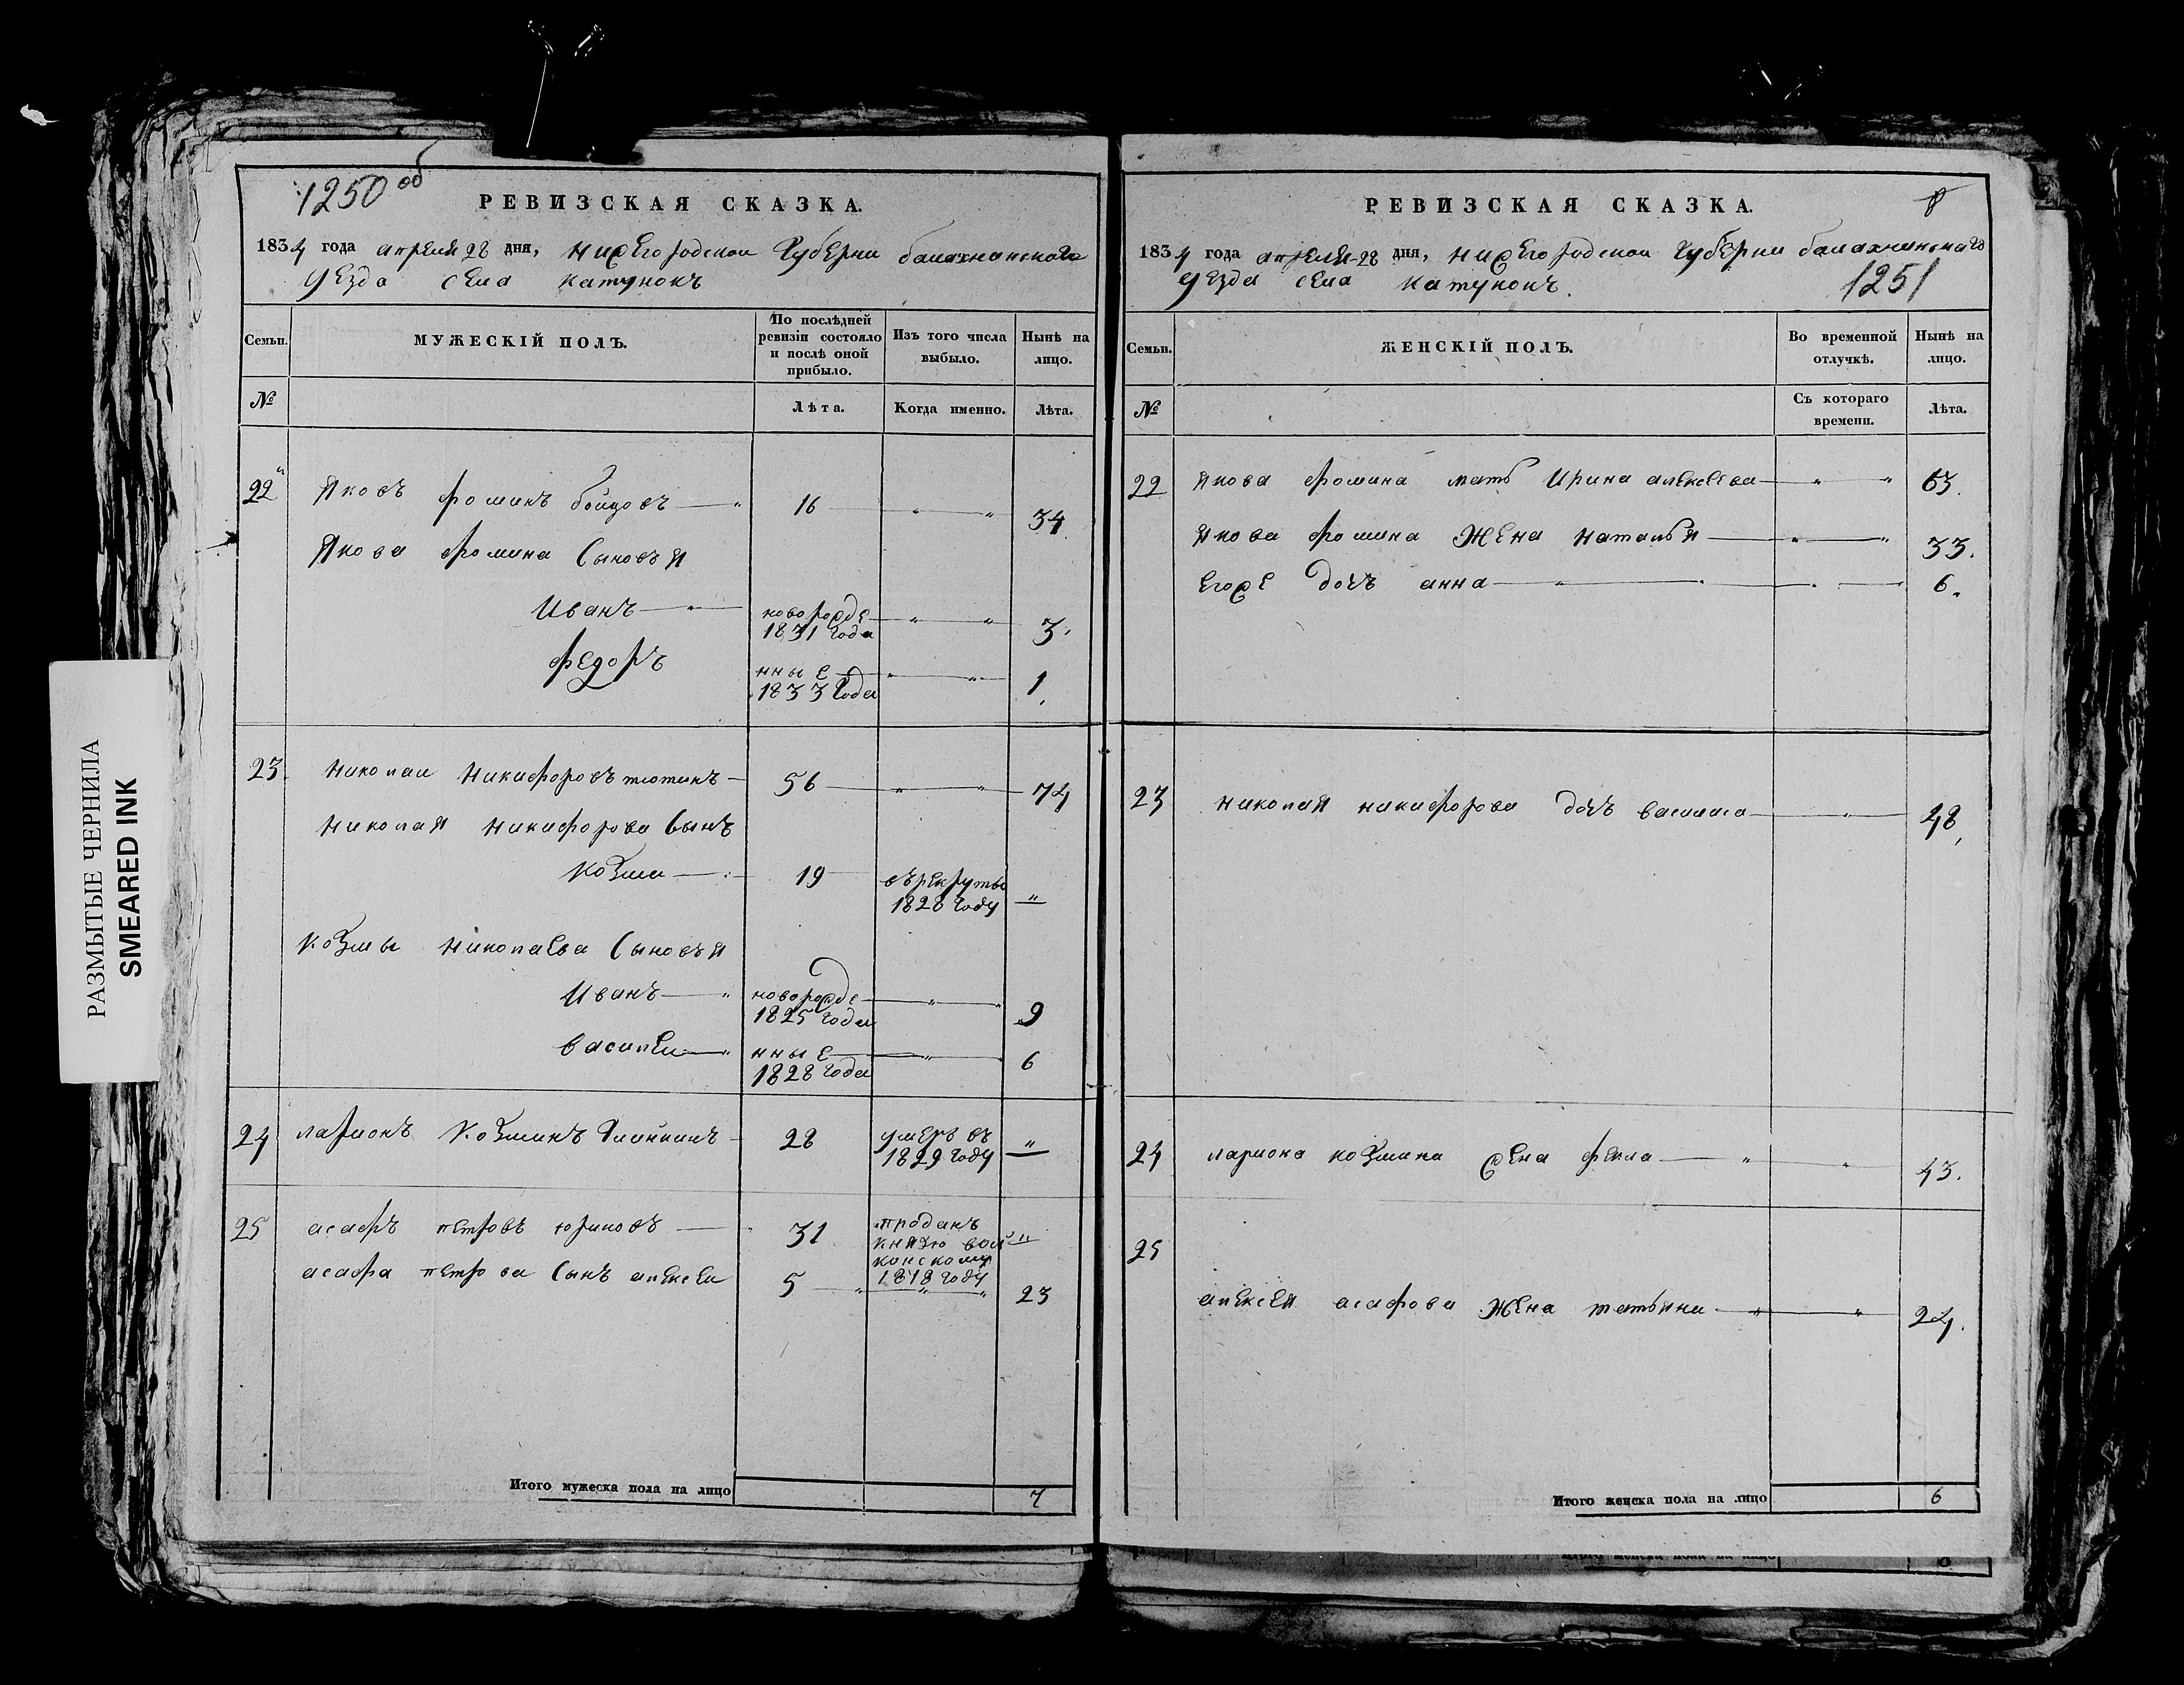 1250 об
РЕВИЗСКАЯ СКАЗКА.
1834 года апреля 28 дня, нижегородской Губерни балахнинскаго
уезда села катунокъ
Семьи.
МУЖЕСКІЙ ПОЛЪ.
По послѣдней ревизіи состояло и послѣ оной прибыло.
Изъ того числа выбыло.
Нынѣ на лицо.
№
Лѣта.
Когда именно.
Лѣта.
22
Яковъ фоминъ бойцовъ
16
34
Якова фомина сыновья
Иванъ
новорожде
1831 года
3.
федоръ
нные
1833 года
1.
23.
николаи никифоровъ тютинъ
56
74
николая никифорова сынъ
козма
19
върекруты
1828 году
"
козмы николаева сыновья
Иванъ
новорожде
1825 года
9
василеи
нные
1828 года
6
24
ларионъ козминъ
28
умеръ въ
1829 году
"
25
асафъ петровъ юриновъ
31
проданъ
князю вол
конскому
1818 году
"
асафа петрова сынъ алексеи
5
23
Итого мужеска пола на лицо
7
РЕВИЗСКАЯ СКАЗКА.
8
1834 года апреля 28 дня, нижегородской Губерни балахнинскаго
уезда села катунокъ.
1251
Семьи.
ЖЕНСКІЙ ПОЛЪ.
Во временной отлучкѣ.
Нынѣ на лицо.
№
Съ котораго времени.
Лѣта.
22
Якова фомина мать Ирина алексеева
63.
Якова фомина жена наталья
33.
егоже дочь анна
6.
23
николая никифорова дочь василиса
48.
24
лариона козмина жена фекла
43.
25
алексея асафова жена татьяна
24.
Итого женска пола на лицо
6
РАЗМЫТЫЕ ЧЕРНИЛА
SMEARED INK